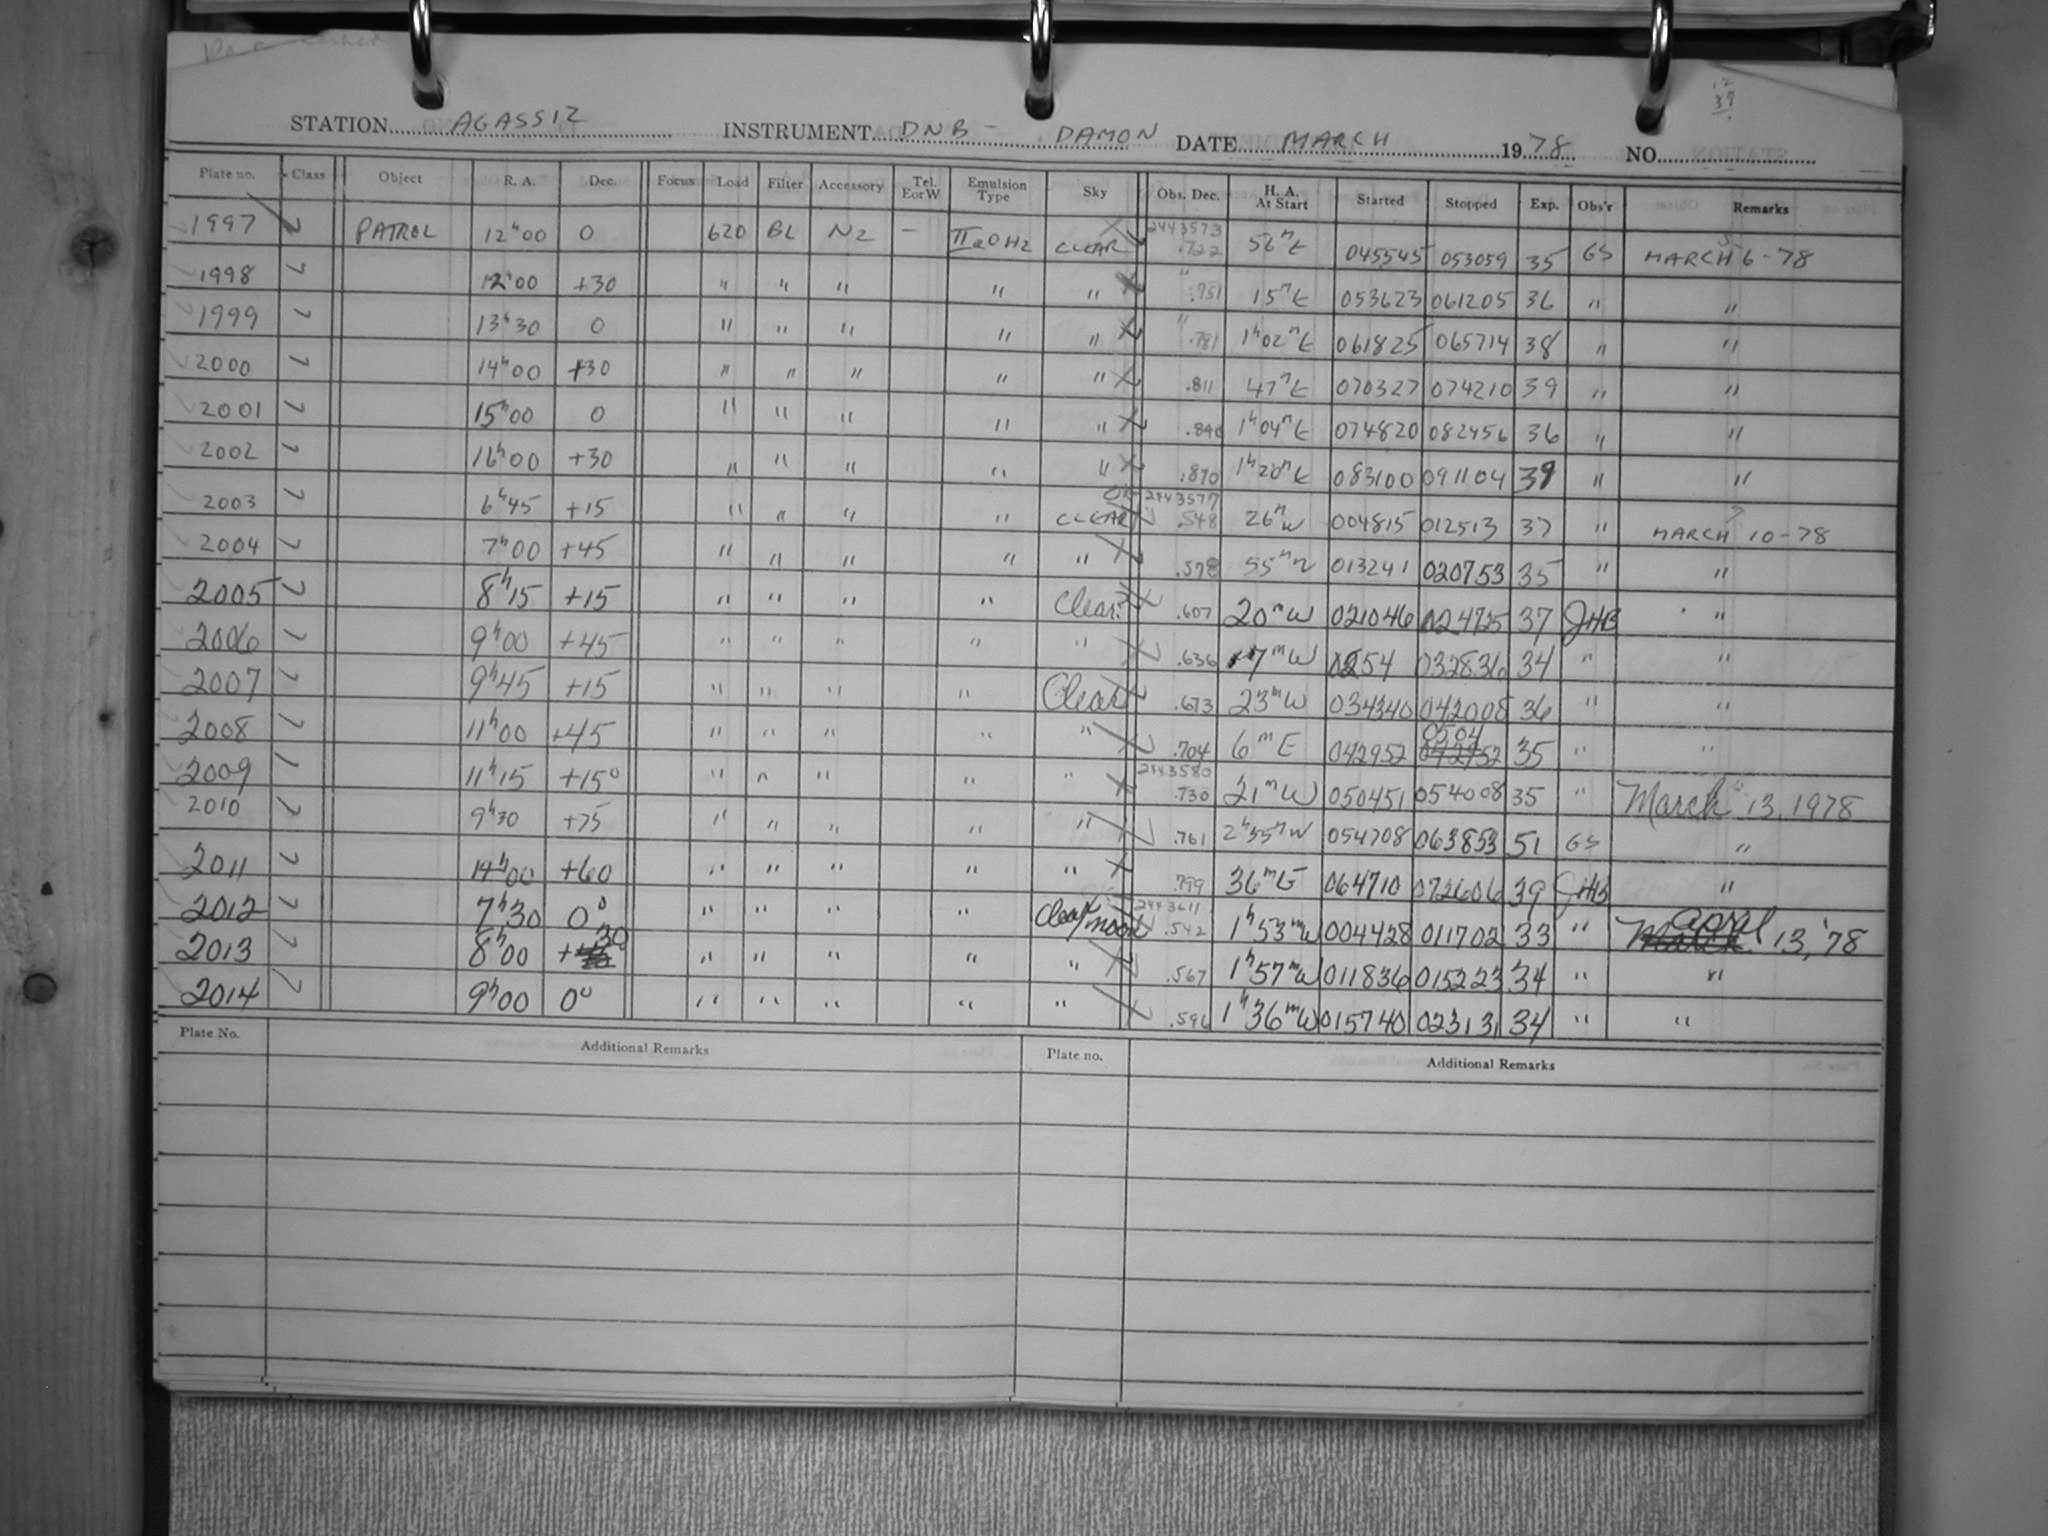 STATION AGASSIZ INSTRUMENT DNB - DAMON DATE MARCH 1978 NO.
Plate no. Class Object R. A. Dec. Focus Load Filter Accessory Tel. E or W Emulsion Type Sky Obs. Dec. H. A. At Start Started Stopped Exp. Obs'r Remarks
1997 PATROL 12h00 0 620 BL N2 - IIaO H2 CLEAR 2443573 .722 56m E 045545 053059 35 GS MARCH 6-78
1998 12h00 +30 " " " " " " .751 15m E 053623 061205 36 " "
1999 13h30 0 " " " " " " .781 1h02m E 061825 065714 38 " "
2000 14h00 +30 " " " " " .811 47m E 070327 074210 39 " "
2001 15h00 0 " " " " " .840 1h04m E 074820 082456 36 " "
2002 16h00 +30 " " " " " .870 1h20m E 083100 091104 39 " "
2003 6h45 +15 " " " " CLEAR 2443577 .548 26m W 004815 012513 37 " MARCH 10-78
2004 7h00 +45 " " " " " .578 55m W 013241 020753 35 " "
2005 8h15 +15 " " " " Clear .607 20m W 021046 024725 37 JHB "
2006 9h00 +45 " " " " " .636 17m W 0254 032836 34 " "
2007 9h45 +15 " " " " Clear .673 23m W 034340 042008 36 " "
2008 11h00 +45 " " " " " .704 6m E 042952 0504 35 " "
2009 11h15 +15° " " " " " 2443580 .730 21m W 050451 054008 35 " March 13, 1978
2010 9h30 +75 " " " " " .761 2h35m W 054708 063853 51 GS "
2011 14h00 +60 " " " " " .799 36m E 064710 072606 39 JHB "
2012 7h30 0° " " " " Clear/moon 2443611 .542 1h53m W 004428 011702 33 " April 13, '78
2013 8h00 +30 " " " " " .567 1h57m W 011836 015223 34 " "
2014 9h00 0° " " " " " .596 1h36m W 015740 023131 34 " "
Plate No. Additional Remarks Plate no. Additional Remarks